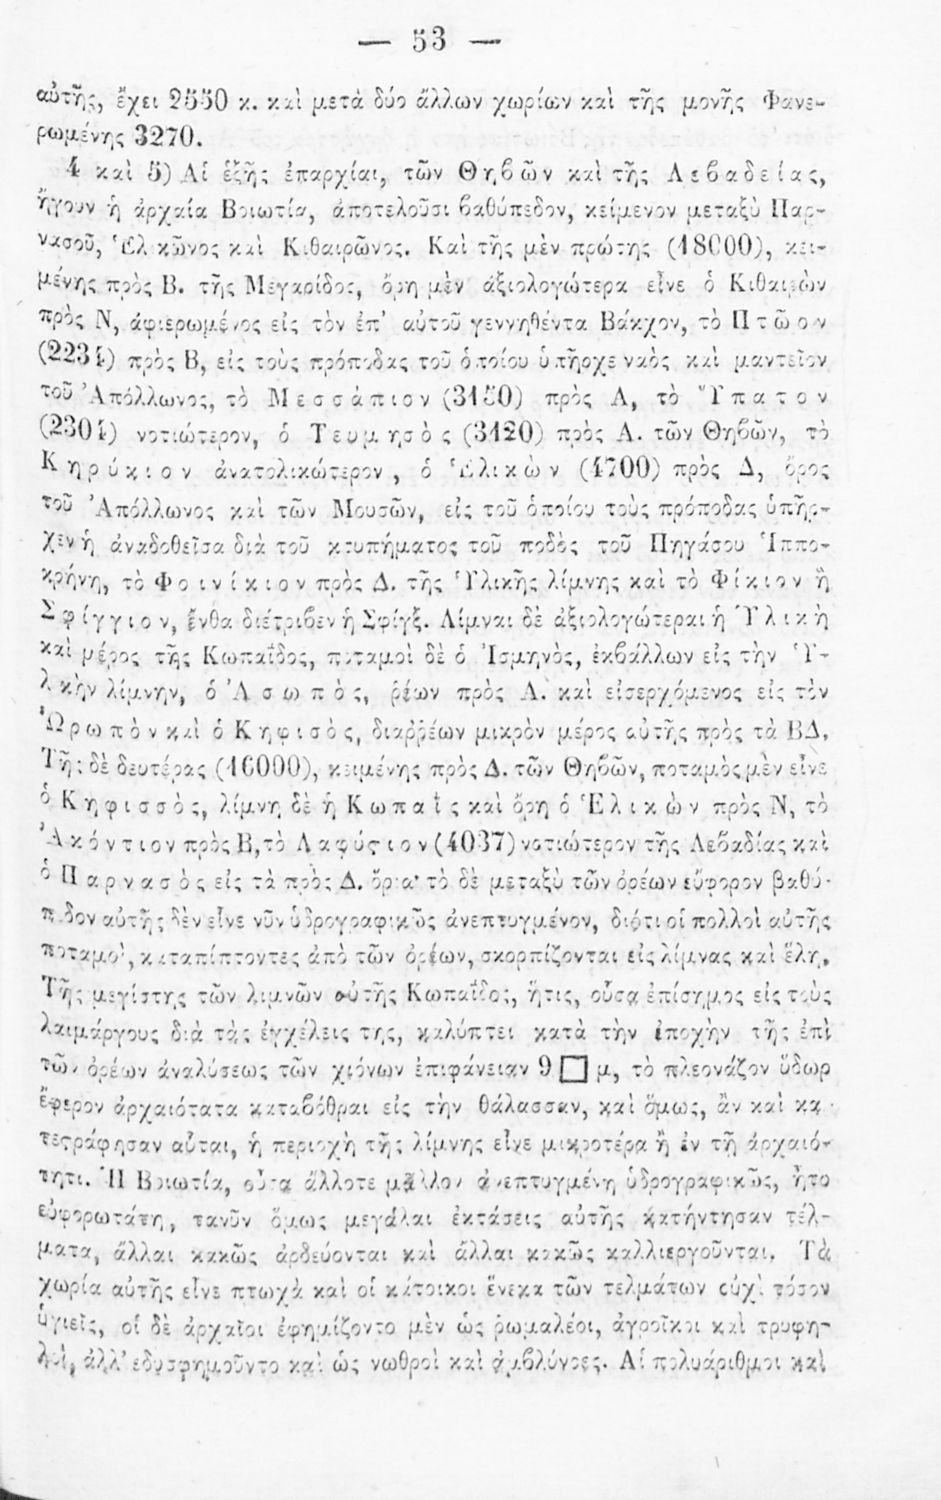 — 53 —
αὐτῆς, ἔχει 2550 κ. καὶ μετὰ δύο ἄλλων χωρίων καὶ τῆς μονῆς Φανε-
ρωμένης 3270.
4 καὶ 5) Αἱ ἑξῆς ἐπαρχίαι, τῶν Θηβῶν καὶ τῆς Λεβαδείας,
ἤγουν ἡ ἀρχαία Βοιωτία, ἀποτελοῦσι βαθύπεδον, κείμενον μεταξὺ Παρ-
νασοῦ, Ἑλικῶνος καὶ Κιθαιρῶνος. Καὶ τῆς μὲν πρώτης (18000), κει-
μένης πρὸς Β. τῆς Μεγαρίδος, ὄρη μὲν ἀξιολογώτερα εἶνε ὁ Κιθαιρὼν
πρὸς Ν, ἀφιερωμένος εἰς τὸν ἐπ' αὐτοῦ γεννηθέντα Βάκχον, τὸ Πτῶον
(2234) πρὸς Β, εἰς τοὺς πρόποδας τοῦ ὁποίου ὑπῆρχε ναὸς καὶ μαντεῖον
τοῦ Ἀπόλλωνος, τὸ Μεσσάπιον (3150) πρὸς Α, τὸ Ὕπατον
(2304) νοτιώτερον, ὁ Τευμησὸς (3120) πρὸς Α. τῶν Θηβῶν, τὸ
Κηρύκιον ἀνατολικώτερον, ὁ Ἑλικὼν (4700) πρὸς Δ, ὄρος
τοῦ Ἀπόλλωνος καὶ τῶν Μουσῶν, εἰς τοῦ ὁποίου τοὺς πρόποδας ὑπῆρ-
χεν ἡ ἀναδοθεῖσα διὰ τοῦ κτυπήματος τοῦ ποδὸς τοῦ Πηγάσου Ἱππο-
κρήνη, τὸ Φοινίκιον πρὸς Δ. τῆς Ὑλικῆς λίμνης καὶ τὸ Φίκιον ἢ
Σφίγγιον, ἔνθα διέτριβεν ἡ Σφίγξ. Λίμναι δὲ ἀξιολογώτεραι ἡ Ὑλικὴ
καὶ μέρος τῆς Κωπαΐδος, ποταμοὶ δὲ ὁ Ἰσμηνὸς, ἐκβάλλων εἰς τὴν Ὑ-
λικὴν λίμνην, ὁ Ἀσωπὸς, ῥέων πρὸς Α. καὶ εἰσερχόμενος εἰς τὸν
Ὠρωπὸν καὶ ὁ Κηφισὸς, διαῤῥέων μικρὸν μέρος αὐτῆς πρὸς τὰ ΒΔ.
Τῆς δὲ δευτέρας (16000), κειμένης πρὸς Δ. τῶν Θηβῶν, ποταμὸς μὲν εἶνε
ὁ Κηφισσὸς, λίμνη δὲ ἡ Κωπαῒς καὶ ὄρη ὁ Ἑλικὼν πρὸς Ν, τὸ
Ἀκόντιον πρὸς Β, τὸ Λαφύστιον (4037) νοτιώτερον τῆς Λεβαδίας καὶ
ὁ Παρνασὸς εἰς τὰ πρὸς Δ. ὅρια· τὸ δὲ μεταξὺ τῶν ὀρέων εὔφορον βαθύ-
πεδον αὐτῆς δὲν εἶνε νῦν ὑδρογραφικῶς ἀνεπτυγμένον, διότι οἱ πολλοὶ αὐτῆς
ποταμοὶ, καταπίπτοντες ἀπὸ τῶν ὀρέων, σκορπίζονται εἰς λίμνας καὶ ἕλη.
Τῆς μεγίστης τῶν λιμνῶν αὐτῆς Κωπαΐδος, ἥτις, οὖσα ἐπίσημος εἰς τοὺς
λαιμάργους διὰ τὰς ἐγχέλεις της, καλύπτει κατὰ τὴν ἐποχὴν τῆς ἐπὶ
τῶν ὀρέων ἀναλύσεως τῶν χιόνων ἐπιφάνειαν 9 □ μ, τὸ πλεονάζον ὕδωρ
ἔφερον ἀρχαιότατα καταβόθραι εἰς τὴν θάλασσαν, καὶ ὅμως, ἂν καὶ κα-
τεστράφησαν αὗται, ἡ περιοχὴ τῆς λίμνης εἶνε μικροτέρα ἢ ἐν τῇ ἀρχαιό-
τητι. Ἡ Βοιωτία, οὖσα ἄλλοτε μᾶλλον ἀνεπτυγμένη ὑδρογραφικῶς, ἦτο
εὐφορωτάτη, τανῦν ὅμως μεγάλαι ἐκτάσεις αὐτῆς κατήντησαν τέλ-
ματα, ἄλλαι κακῶς ἀρδεύονται καὶ ἄλλαι κακῶς καλλιεργοῦνται. Τὰ
χωρία αὐτῆς εἶνε πτωχὰ καὶ οἱ κάτοικοι ἕνεκα τῶν τελμάτων οὐχὶ τόσον
ὑγιεῖς, οἱ δὲ ἀρχαῖοι ἐφημίζοντο μὲν ὡς ῥωμαλέοι, ἀγροῖκοι καὶ τρυφη-
λοὶ, ἀλλ' ἐδυσφημοῦντο καὶ ὡς νωθροὶ καὶ ἀμβλύνοες. Αἱ πολυάριθμοι καὶ